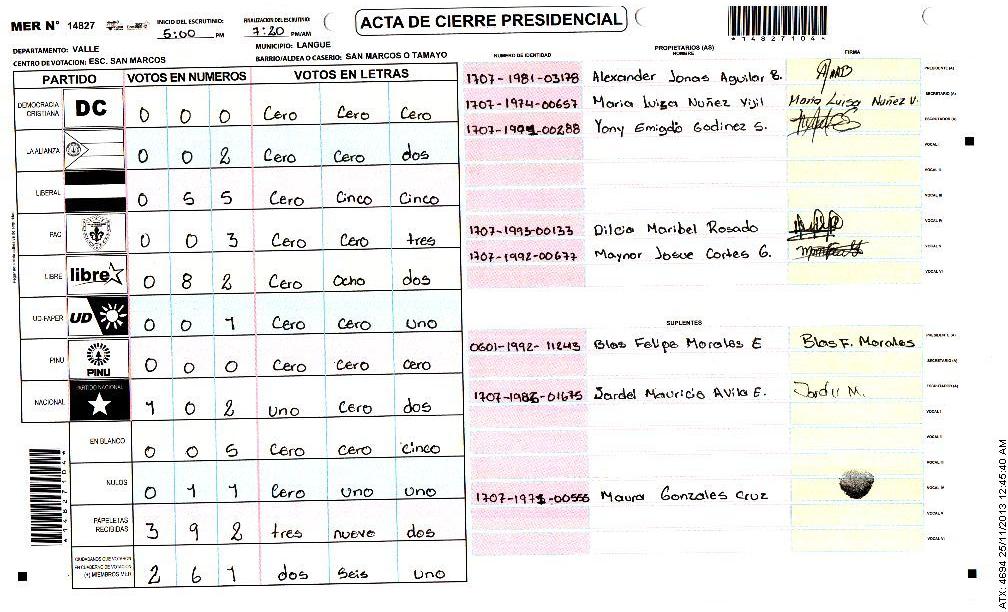 MER N° 14827
INICIO DEL ESCRUTINIO: 5:00 PM
FINALIZACION DEL ESCRUTINIO: 7:20 PM/AM
ACTA DE CIERRE PRESIDENCIAL
*14827104*
DEPARTAMENTO: VALLE
MUNICIPIO: LANGUE
CENTRO DE VOTACION: ESC. SAN MARCOS
BARRIO/ALDEA O CASERIO: SAN MARCOS O TAMAYO
PARTIDO VOTOS EN NUMEROS VOTOS EN LETRAS
DEMOCRACIA CRISTIANA DC 0 0 0 Cero Cero Cero
LA ALIANZA 0 0 2 Cero Cero dos
LIBERAL 0 5 5 Cero Cinco Cinco
PAC 0 0 3 Cero Cero tres
LIBRE libre 0 8 2 Cero Ocho dos
UD-FAPER UD 0 0 1 Cero Cero uno
PINU PINU 0 0 0 Cero Cero cero
NACIONAL PARTIDO NACIONAL 1 0 2 uno Cero dos
EN BLANCO 0 0 5 Cero Cero cinco
NULOS 0 1 1 Cero uno uno
PAPELETAS RECIBIDAS 3 9 2 tres nueve dos
CIUDADANOS QUE VOTARON EN CUADERNO DE VOTACION (+) MIEMBROS MER 2 6 1 dos seis uno
NUMERO DE IDENTIDAD PROPIETARIOS (AS) NOMBRE FIRMA
1707-1981-03178 Alexander Jonas Aguilar B. PRESIDENTE (A)
1707-1974-00657 Maria Luisa Nuñez Vijil Maria Luisa Nuñez V. SECRETARIO (A)
1707-1991-00288 Yony Emigdo Godinez S. ESCRUTADOR (A)
VOCAL I
VOCAL II
VOCAL III
1707-1993-00133 Dilcia Maribel Rosado VOCAL IV
1707-1992-00677 Maynor Josue Cortes G. VOCAL V
VOCAL VI
SUPLENTES
0601-1992-11243 Blas Felipe Morales E Blas F. Morales PRESIDENTE (A)
SECRETARIO (A)
Jardel Mauricio Avila E. ESCRUTADOR (A)
VOCAL I
VOCAL II
VOCAL III
Maura Gonzales Cruz VOCAL IV
VOCAL V
VOCAL VI
*14827104*
ATX: 4694 25/11/2013 12:45:40 AM